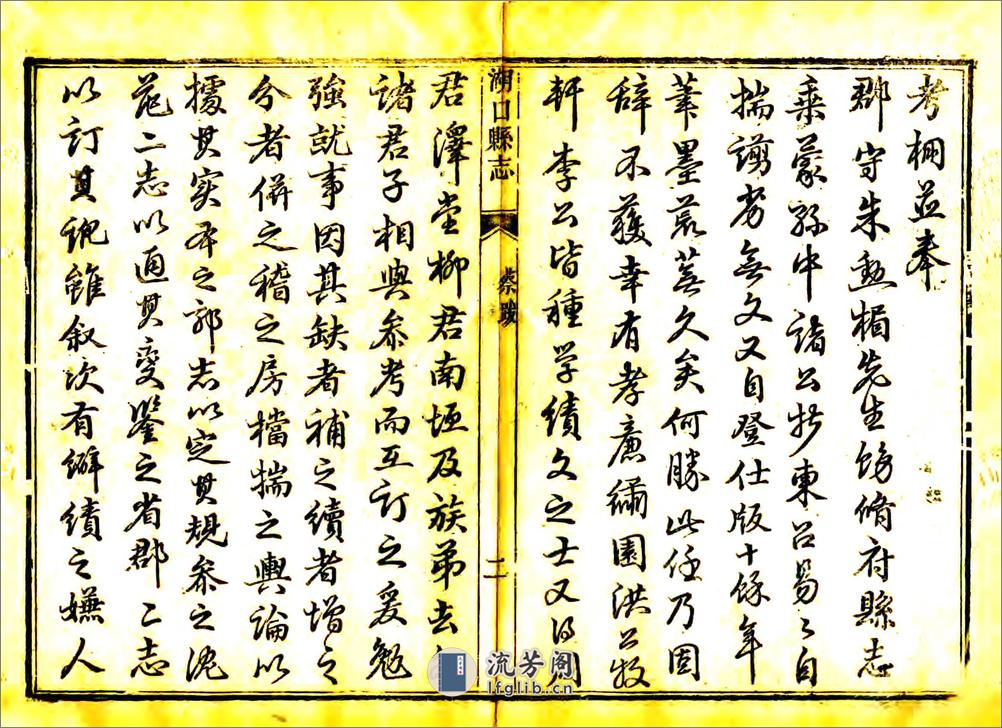 考棚並奉
郡守朱勳楣先生飭脩府縣志
乘蒙邑中諸公抄東召易之自
揣譾劣無文又自登仕版十餘年
筆墨荒蕪久矣何勝此任乃固
辭不獲幸有孝廉繡園洪公牧
軒李公皆種学績文之士又得周
湖口縣志
蔡跋
二
君澤堂柳君南垣及族弟去
諸君子相與參考而互訂之爰勉
強就事因其缺者補之續者增之
分者併之稽之房檔揣之輿論以
據其实本之郭志以定其規參之沈
范二志以通其变鑒之省郡二志
以訂其訛雖叙次有辭績之嫌人
流芳阁
lfglib.cn